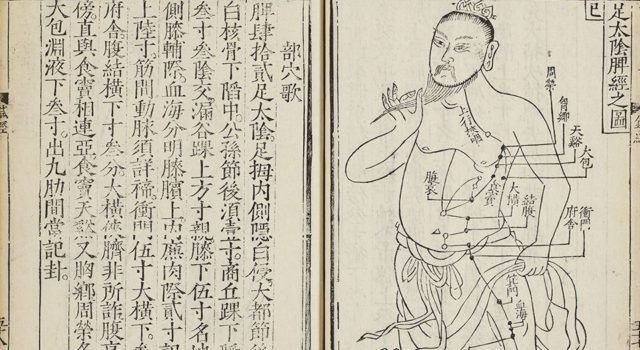 足太陰脾經之圖
巳
周榮
胷鄉
天谿
大包
上行挾咽
食竇
腹哀
大橫
結腹
府舍
衝門
箕門
血海
部穴歌
脾肆拾貳足太陰。足拇內側隱白侵。大都節後
白核骨下陷中。公孫節後湏壹寸。商丘踝下
叁寸叁陰交。漏谷踝上方寸親。膝下伍寸名地
側膝輔際。血海分明膝臏上。內廉肉際貳寸記
上陸寸。筋間動脉須詳稱。衝門伍寸大橫下。叁
府舍腹結橫下寸叁分。大橫俠臍非所詐。腹哀
傍。直與食竇相連亞。食竇天谿又胸鄉周榮各
大包淵液下叁寸。出九肋間當記卦。